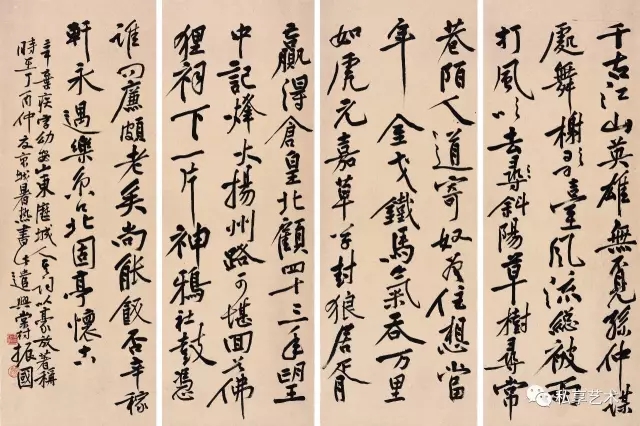 千古江山英雄無覓孫仲謀
處舞榭歌臺風流總被雨
打風吹去尋斜陽草樹尋常
巷陌人道寄奴曾住想當
年金戈鐵馬氣吞万里
如虎元嘉草草封狼居胥
贏得倉皇北顧四十三年望
中記烽火揚州路可堪回首佛
狸祠下一片神鴉社鼓憑
誰問廉頗老矣尚能飯否辛稼
軒永遇樂京口北固亭懷古
辛棄疾字幼安山東歷城人其詞以豪放著稱
時在丙仲夏京城暑熱書以遣興振國
私享艺术